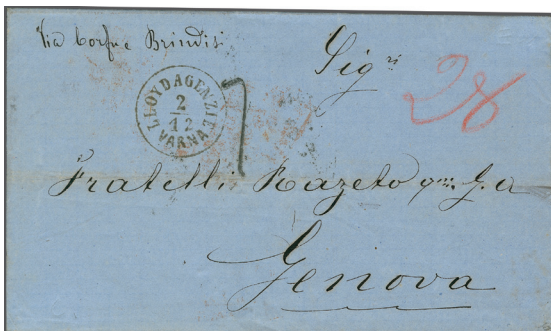 Via Corfu e Brindisi
Sigri
28
LLOYDAGENZIE
2
12
VARNA
7
Fratelli Razeto qm G.a
Genova